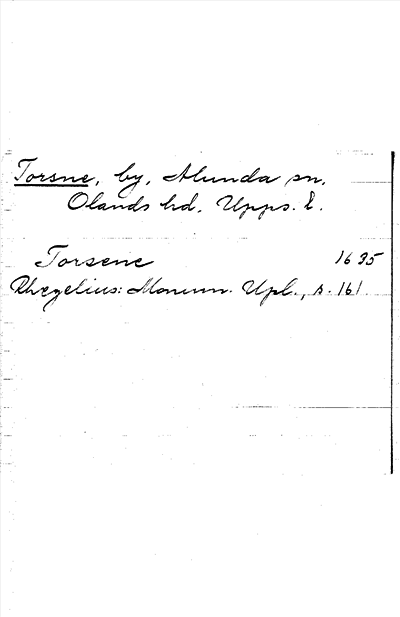 Torsne, by, Alunda sn,
Olands hd. Upps. l.
Torsene 1635
Rhezelius: Monum. Upl., s. 161